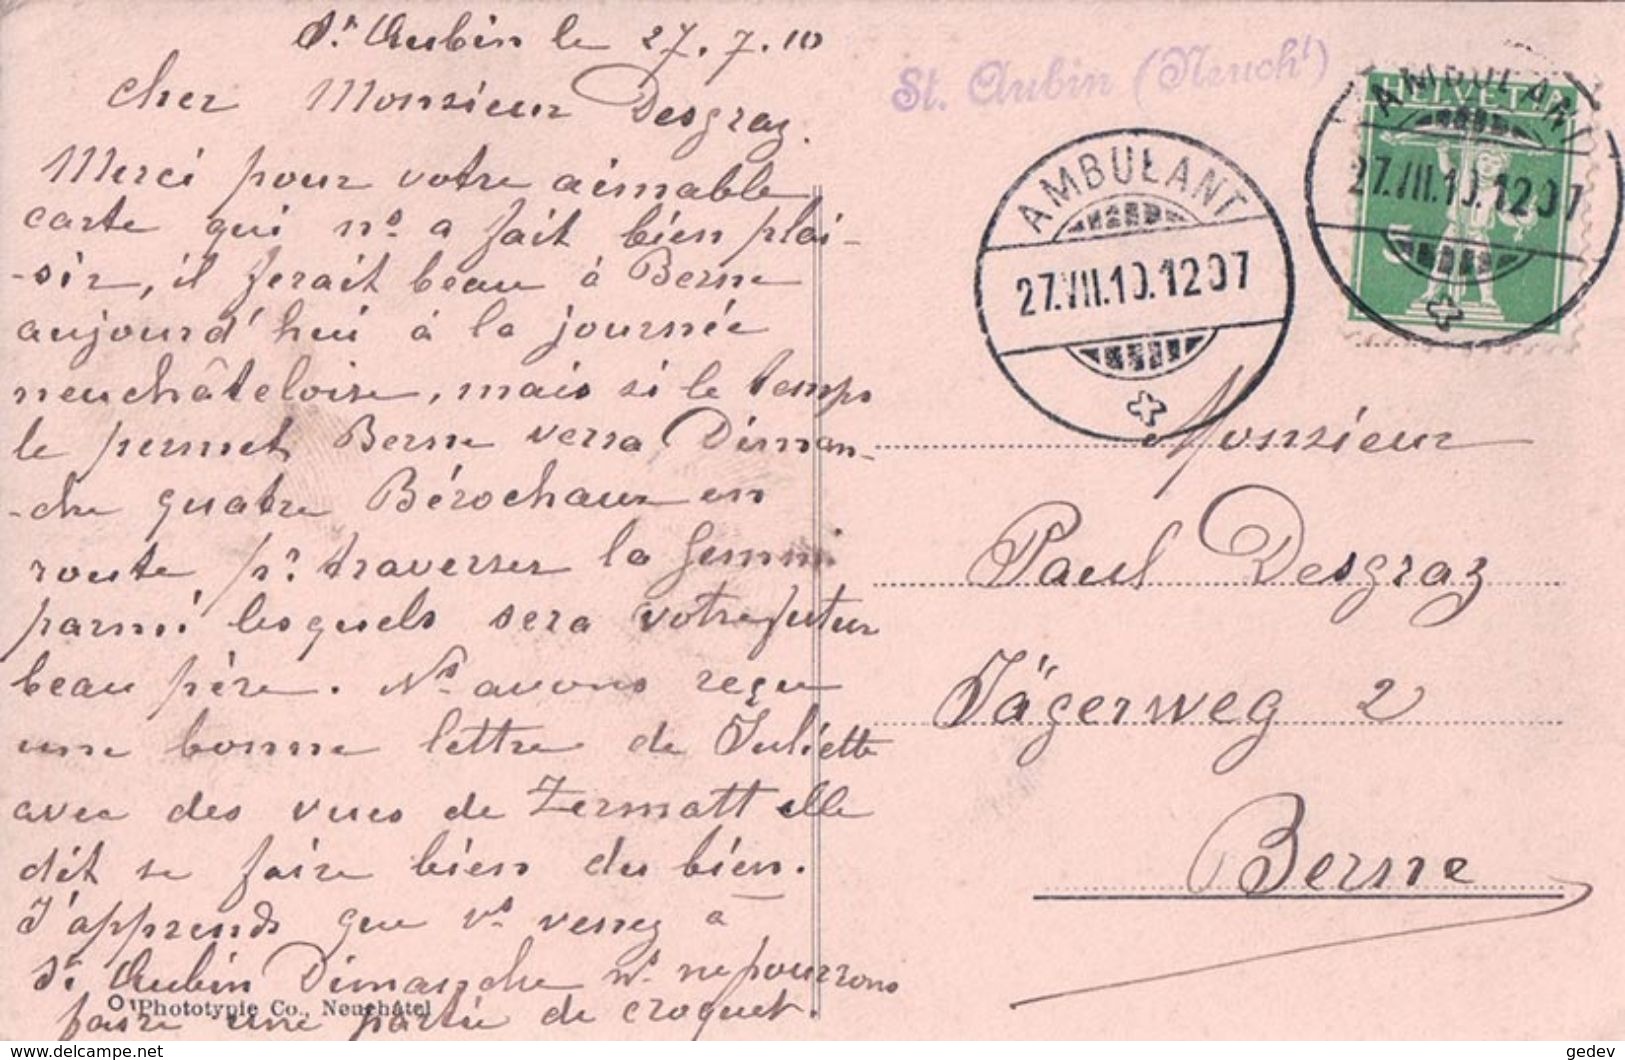 St Aubin le 27.7.10
Cher Monsieur Desgraz.
Merci pour votre aimable
carte qui ns. a fait bien plai-
-sir, il ferait beau à Berne
aujourd'hui à la journée
neuchâteloise, mais si le temps
le permet Berne verra Diman-
-che quatre Bérochaux en
route pr. traverser la Gemmi
parmi lesquels sera votre futur
beau père. Ns. avons reçu
une bonne lettre de Juliette
avec des vues de Zermatt elle
dit se faire bien du bien.
J'apprends que vs. venez à
St Aubin Dimanche ns. ne pourrons
faire une partie de croquet.
Phototypie Co., Neuchâtel
St. Aubin (Neucht)
AMBULANT
27.VII.10.1207
AMBULANT
27.VII.10.1207
HELVETIA
5
Monsieur
Paul Desgraz
Jägerweg 2
Berne
https://www.delcampe.net
gedev